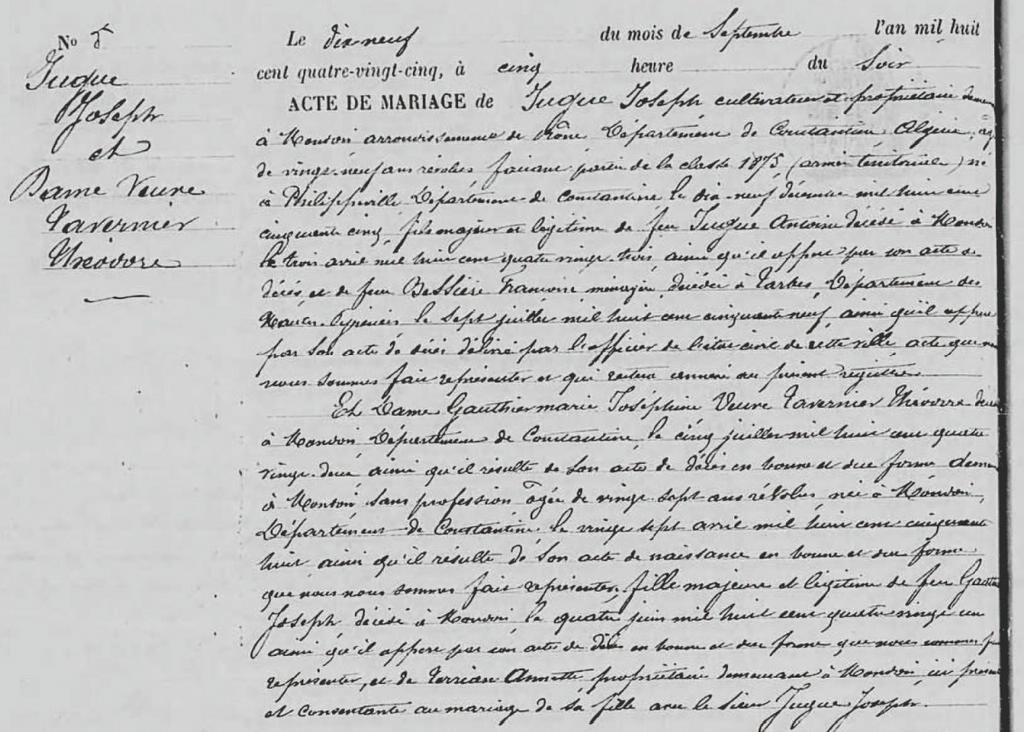 No 5
Juque
Joseph
et
Dame Veuve
Tavernier
Théodore
Le dix-neuf du mois de Septembre l'an mil huit
cent quatre-vingt-cinq, à cinq heure du Soir
ACTE DE MARIAGE de Juque Joseph cultivateur et propriétaire
à Mondovi arrondissement de Bône, Département de Constantine, Algérie,
de vingt-neuf ans révolus faisant partie de la classe 1875 (armée territoriale) né
à Philippeville, Département de Constantine le dix-neuf décembre mil huit cent
cinquante cinq, fils majeur et légitime de feu Juque Antoine décédé à
le trois avril mil huit cent quatre vingt-trois ainsi qu'il appert par son acte de
décès, et de feue Bessière Françoise ménagère, décédée à Tarbes, Département des
Hautes-Pyrénées, le sept juillet mil huit cent cinquante neuf, ainsi qu'il appert
par son acte de décès délivré par l'officier de l'état civil de cette ville acte que
nous sommes fait représenter et qui restera annexé au présent registre
Et Dame Gauthier marie Joséphine Veuve Tavernier Théodore
à Mondovi Département de Constantine, le cinq juillet mil huit cent quatre
vingt-deux ainsi qu'il résulte de son acte de décès en bonne et due forme
à Mondovi sans profession âgée de vingt-sept ans révolus, née à Mondovi,
Département de Constantine, le vingt sept avril mil huit cent cinquante
huit ainsi qu'il résulte de son acte de naissance en bonne et due forme
que nous nous sommes fait représenter, fille majeure et légitime de feu
Joseph décédé à Mondovi, le quatre juin mil huit cent quatre vingt un
ainsi qu'il appert par son acte de décès en bonne et due forme que nous sommes
représenter, et de Terrian Annette propriétaire demeurant à Mondovi ici
et consentante au mariage de sa fille avec le sieur Juque Joseph.